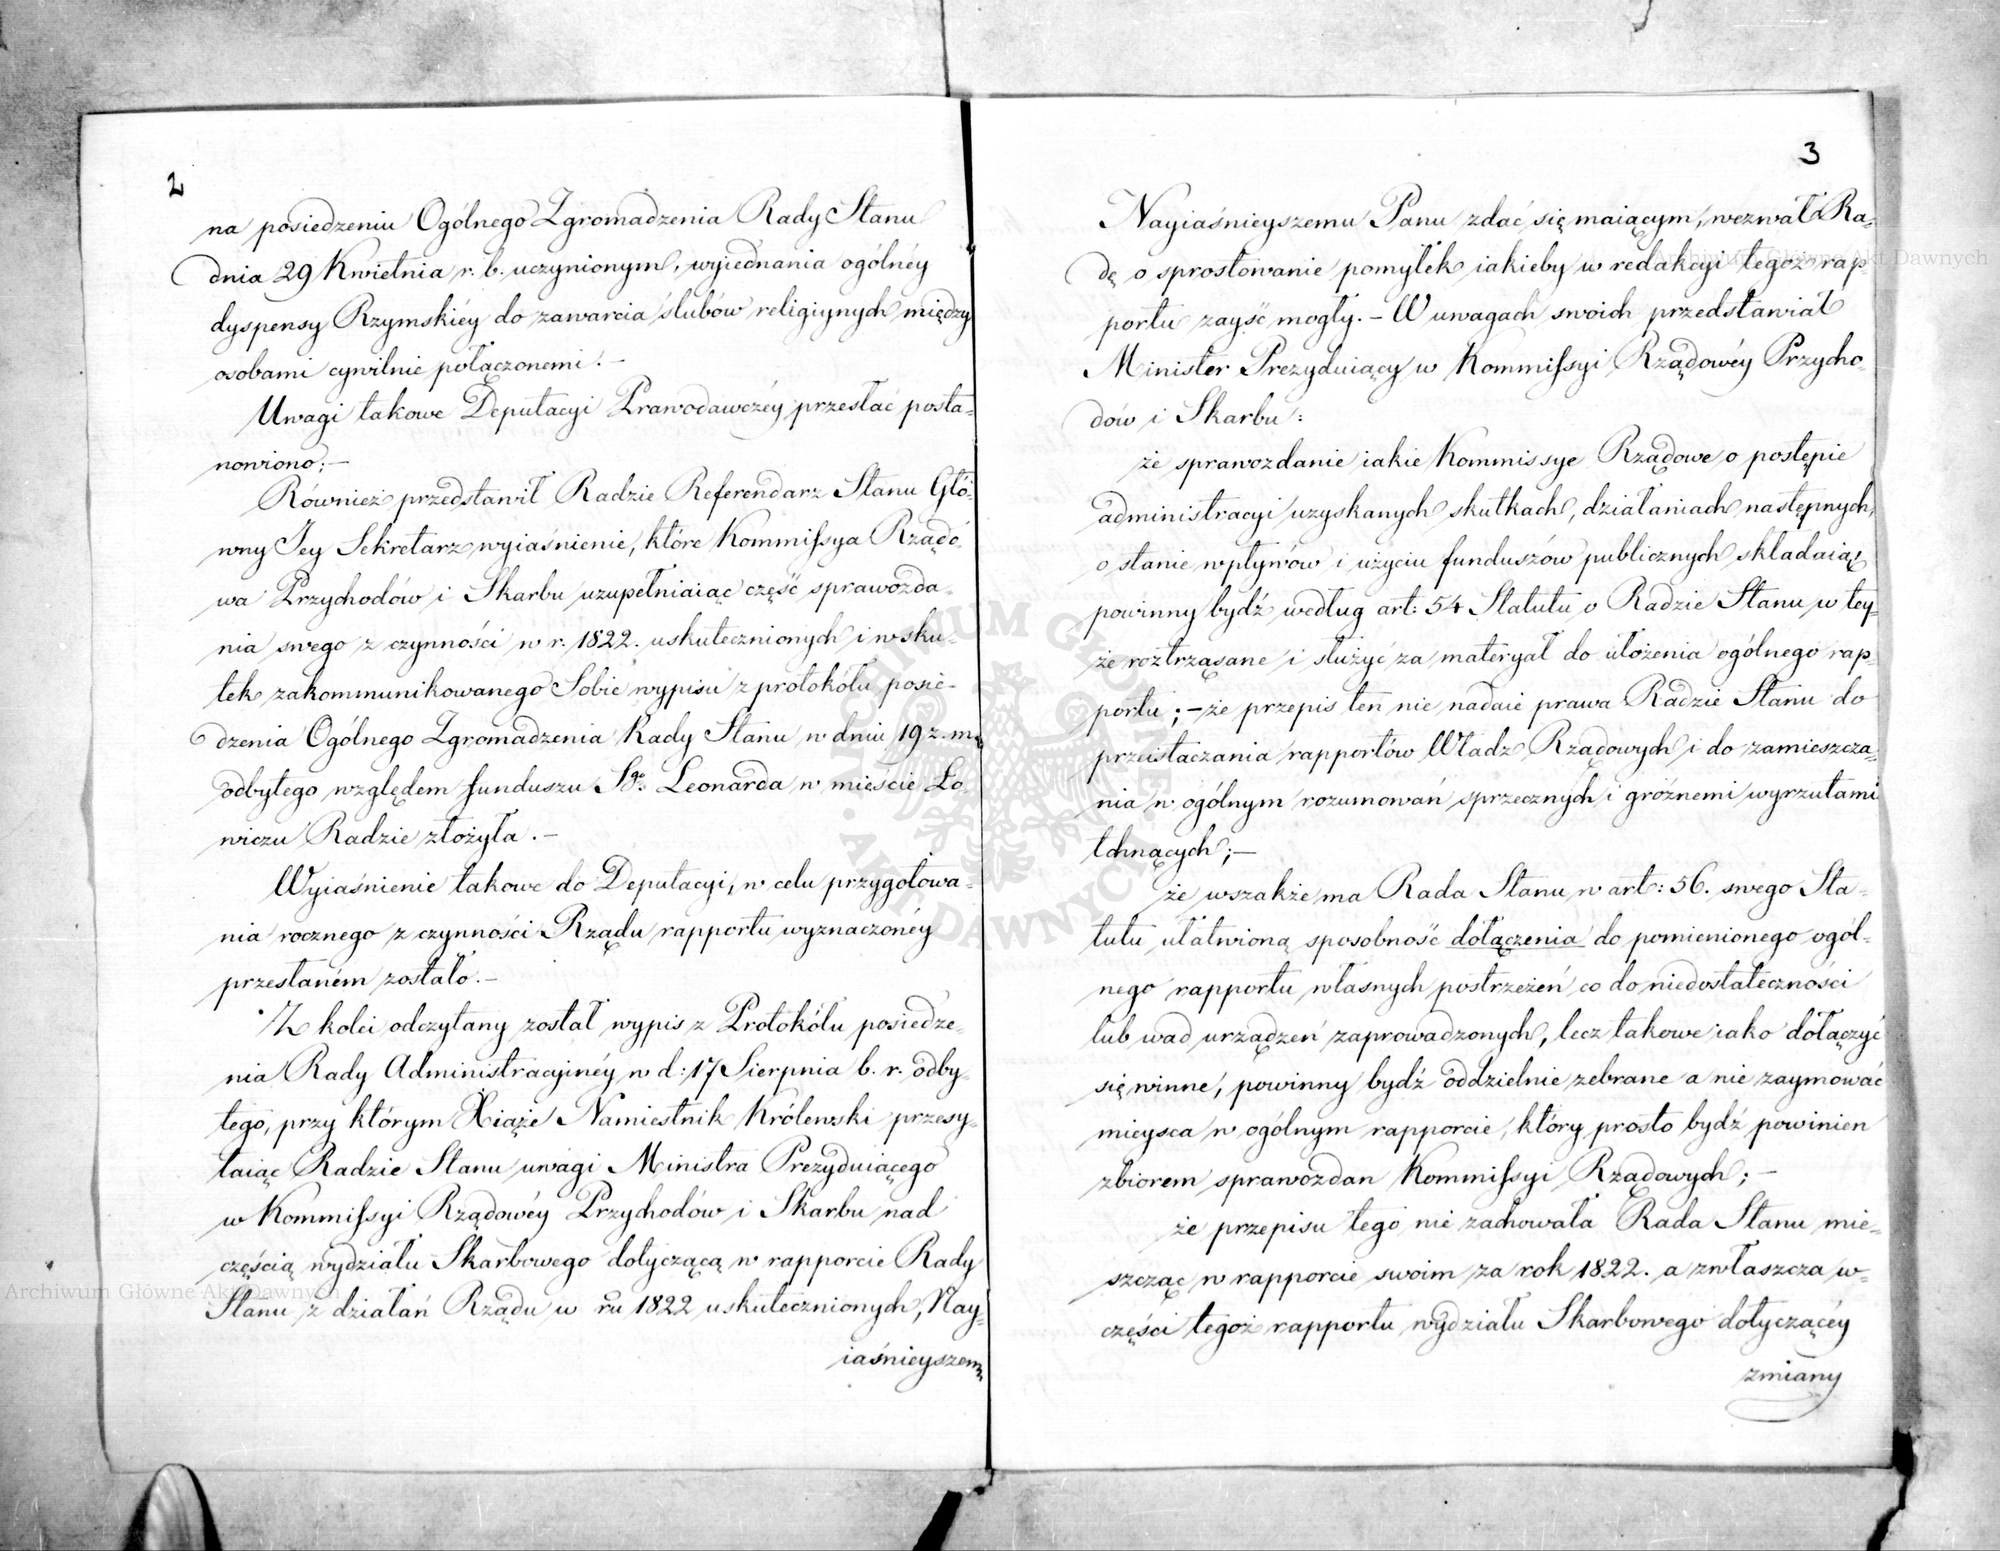 2
na posiedzeniu Ogólnego Zgromadzenia Rady Stanu
dnia 29 Kwietnia r. b. uczynionym, wyjednania ogólnéy
dyspensy Rzymskiéy do zawarcia ślubów religiynych między
osobami cywilnie połączonemi. –
Uwagi takowe Deputacyi Prawodawczéy przesłać posta-
nowiono; –
Również przedstawił Radzie Referendarz Stanu Głó-
wny Jey Sekretarz wyiaśnienie, które Kommissya Rządo-
wa Przychodów i Skarbu uzupełniaiąc część sprawozda-
nia swego z czynności w r. 1822. uskutecznionych i w sku-
tek zakommunikowanego Sobie wypisu z protokółu posie-
dzenia Ogólnego Zgromadzenia Rady Stanu w dniu 19 z. m.
odbytego względem funduszu Sgo Leonarda w mieście Ło-
wiczu Radzie złożyła. –
Wyiaśnienie takowe do Deputacyi, w celu przygotowa-
nia rocznego z czynności Rządu rapportu wyznaczonéy
przesłaném zostało. –
Z kolei odczytany został wypis z Protokółu posiedze-
nia Rady Administracyinéy w d: 17 Sierpnia b. r. odby-
tego, przy którym Xiąże Namiestnik Królewski przesy-
łaiąc Radzie Stanu uwagi Ministra Prezyduiącego
w Kommissyi Rządowéy Przychodów i Skarbu nad
częścią wydziału Skarbowego dotyczącą w rapporcie Rady
Stanu z działań Rządu w ru 1822 uskutecznionych, Nay-
iaśnieyszemu
3
Nayiaśnieyszemu Panu zdać się maiącym, wezwał Ra-
dę o sprostowanie pomyłek iakieby w redakcyi tegoż rap-
portu zayść mogły. – W uwagach swoich przedstawiał
Minister Prezyduiący w Kommissyi Rządowéy Przycho-
dów i Skarbu:
że sprawozdanie iakie Kommissye Rządowe o postępie
administracyi uzyskanych skutkach, działaniach następnych,
o stanie wpływów i użyciu funduszów publicznych składaią
powinny bydź według art: 54 Statutu o Radzie Stanu w tey-
że roztrząsane i służyć za materyał do ułożenia ogólnego rap-
portu; – że przepis ten nie nadaie prawa Radzie Stanu do
przeistaczania rapportów Władz Rządowych i do zamieszcza-
nia w ogólnym rozumowań sprzecznych i gróźnemi wyrzutami
tchnących; –
że wszakże ma Rada Stanu w art: 56. swego Sta-
tutu ułatwioną sposobność dołączenia do pomienionego ogól-
nego rapportu własnych postrzeżeń co do niedostateczności
lub wad urządzeń zaprowadzonych, lecz takowe iako dołączyć
się winne, powinny bydź oddzielnie zebrane a nie zaymować
mieysca w ogólnym rapporcie, który prosto bydź powinien
zbiorem sprawozdan Kommissyi Rządowych; –
że przepisu tego nie zachowała Rada Stanu mie-
szcząc w rapporcie swoim za rok 1822. a zwłaszcza w-
części tegoż rapportu wydziału Skarbowego dotyczącéy
zmiany
Archiwum Główne Akt Dawnych
Archiwum Główne Akt Dawnych
ARCHIWUM GŁÓWNE AKT DAWNYCH